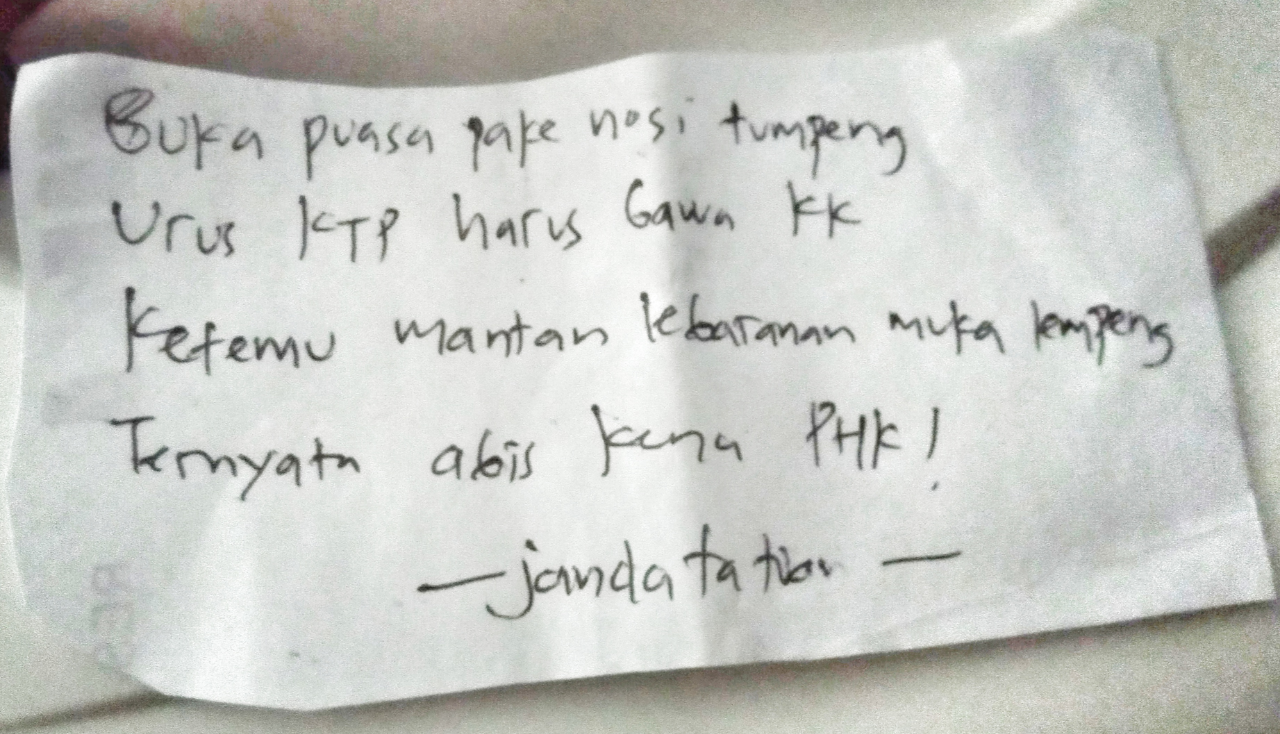 Buka puasa pake nasi tumpeng
Urus KTP harus bawa KK
Ketemu mantan lebaranan muka lempeng
Ternyata abis kena PHK!
— jandata